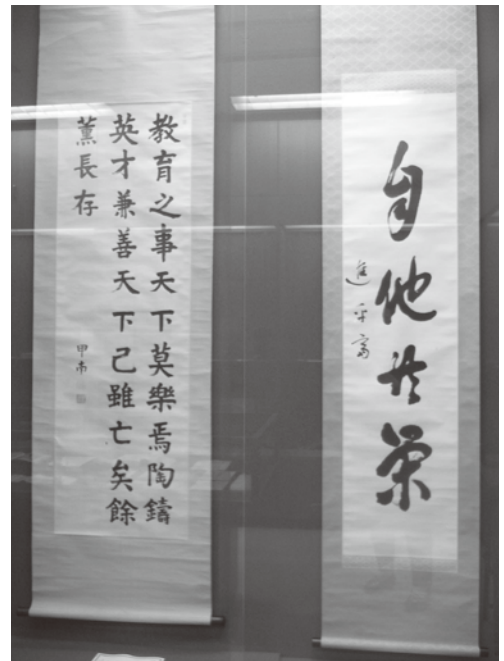 自他共栄
進乎斎
教育之事天下莫樂焉陶鑄
英才兼善天下己雖亡矣餘
薫長存
甲南